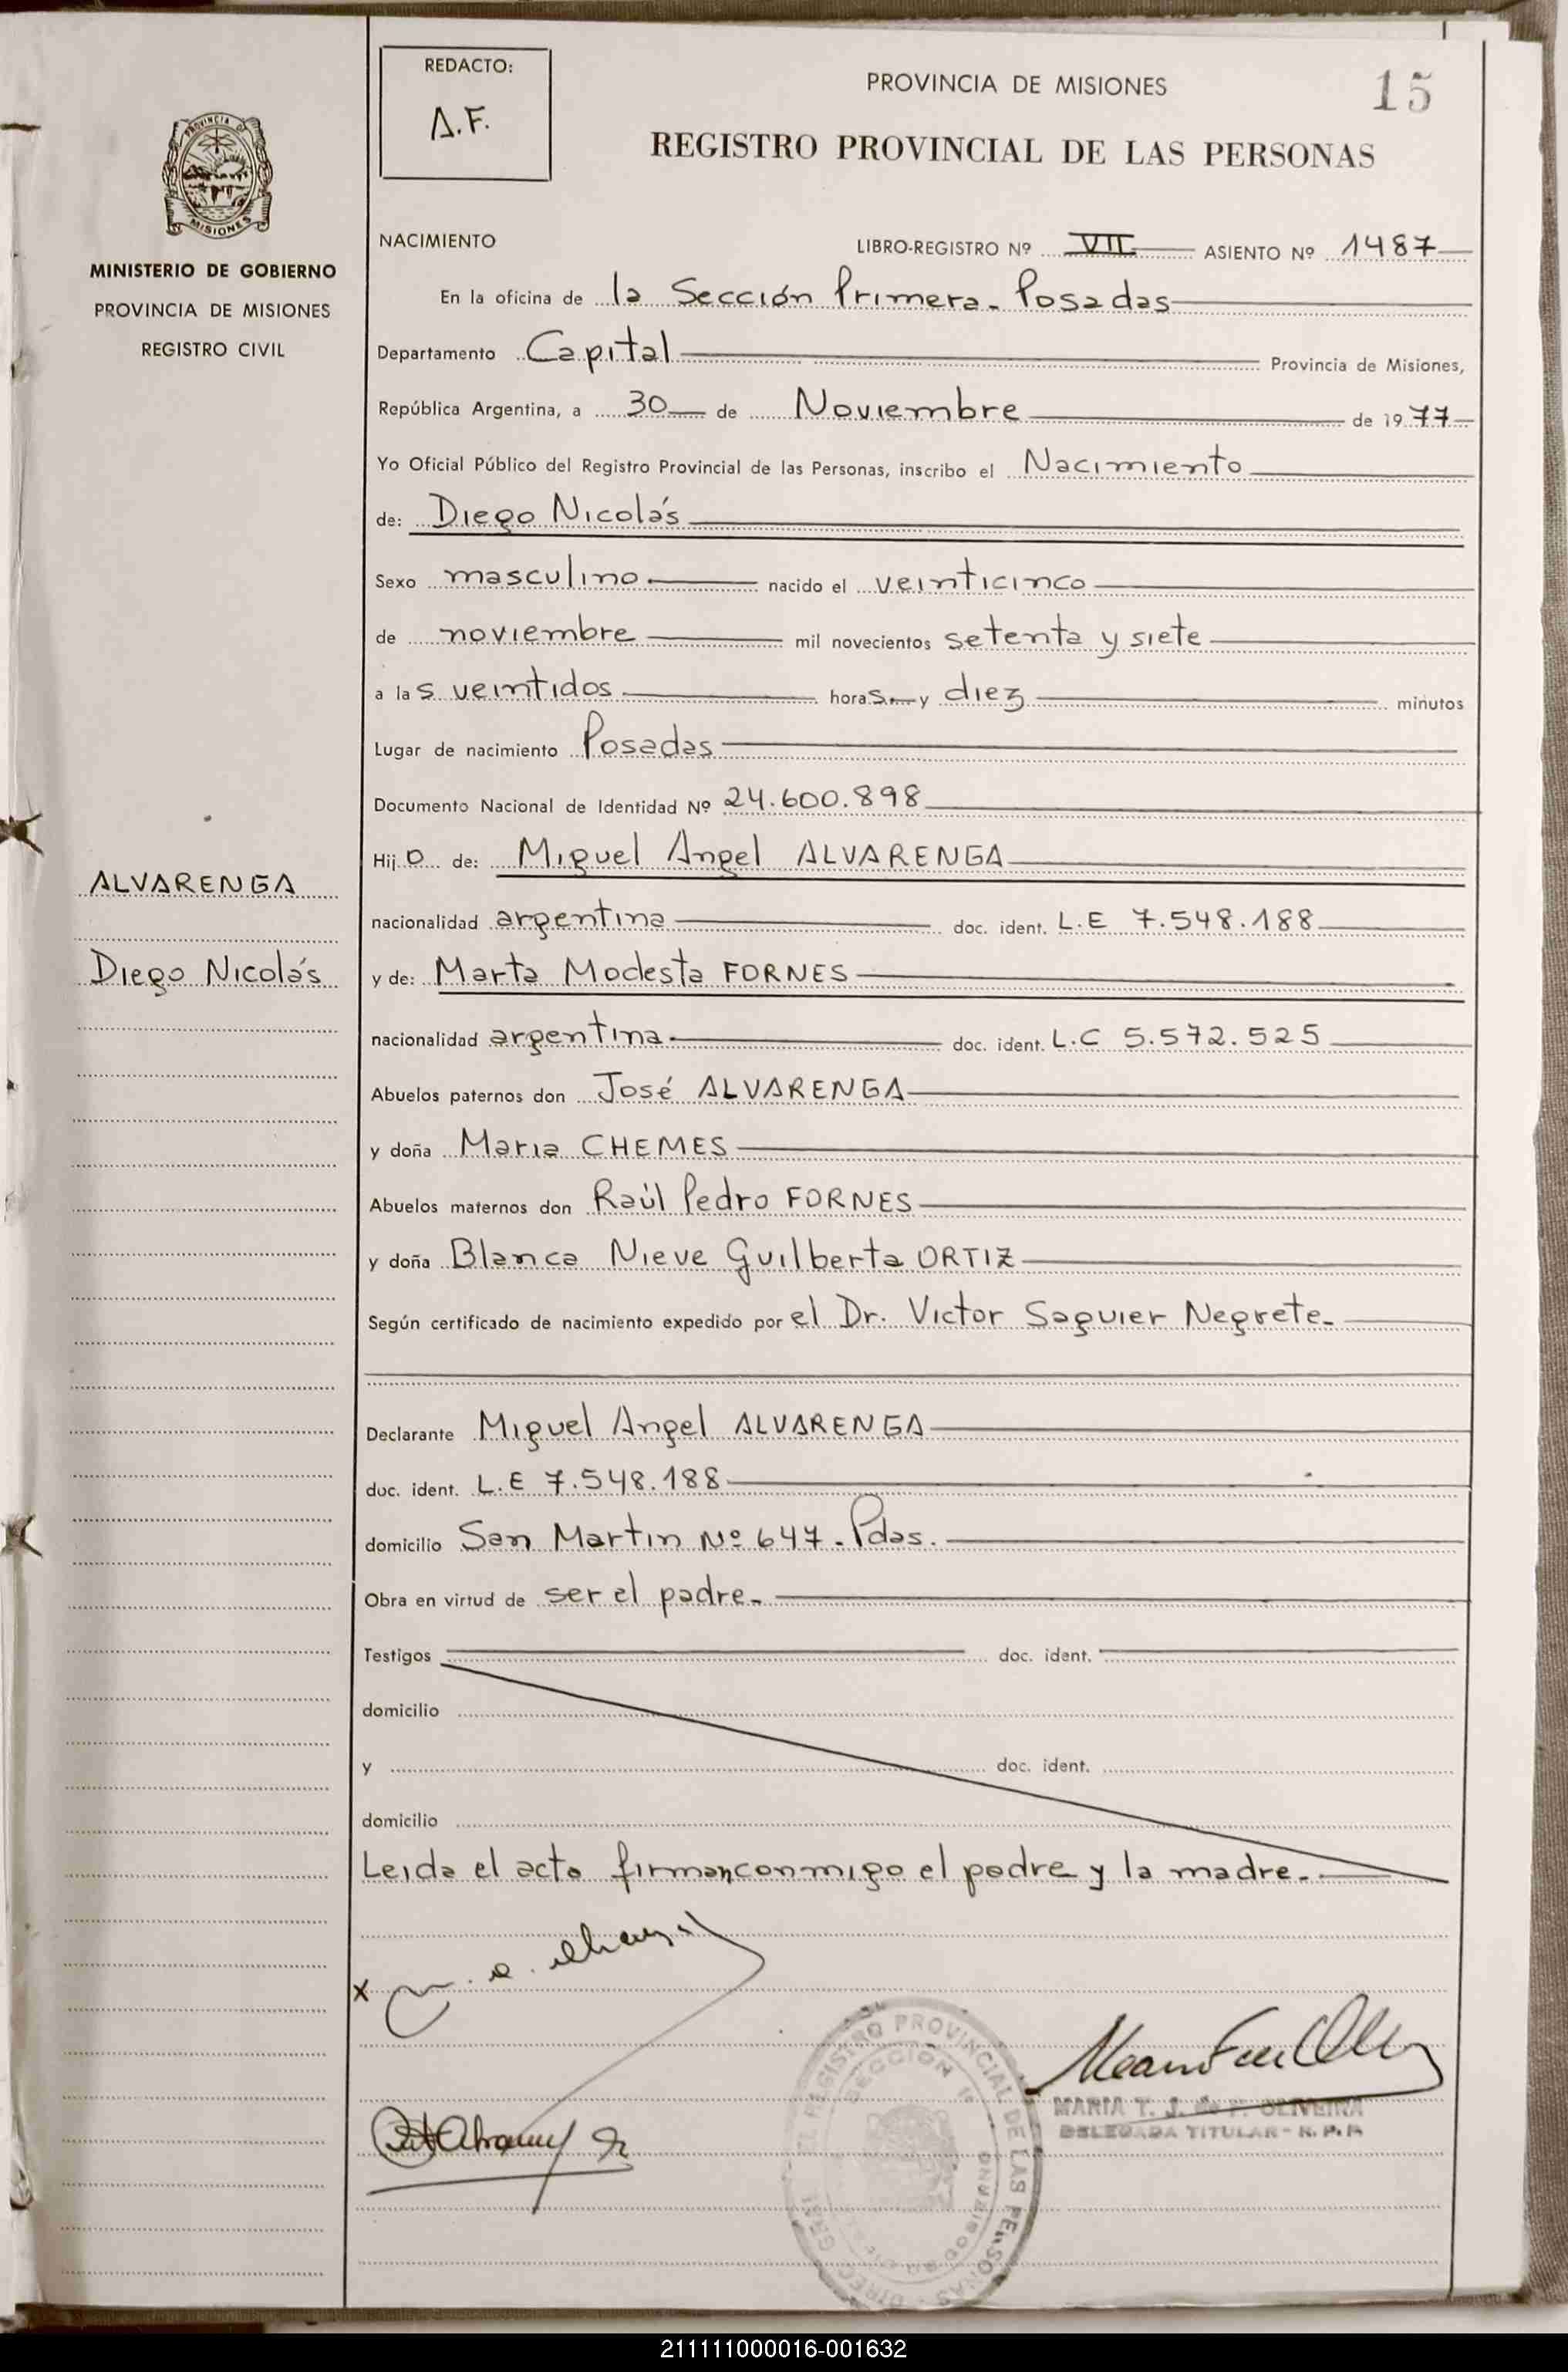 REDACTO:
A.F.
PROVINCIA DE MISIONES
15
REGISTRO PROVINCIAL DE LAS PERSONAS
PROVINCIA DE
MISIONES
MINISTERIO DE GOBIERNO
PROVINCIA DE MISIONES
REGISTRO CIVIL
NACIMIENTO
LIBRO-REGISTRO Nº VII ASIENTO Nº 1487
En la oficina de la Sección Primera - Posadas
Departamento Capital Provincia de Misiones,
República Argentina, a 30 de Noviembre de 1977
Yo Oficial Público del Registro Provincial de las Personas, inscribo el Nacimiento
de: Diego Nicolás
Sexo masculino nacido el veinticinco
de noviembre mil novecientos setenta y siete
a las veintidos horas y diez minutos
Lugar de nacimiento Posadas
Documento Nacional de Identidad Nº 24.600.898
Hijo de: Miguel Angel ALVARENGA
ALVARENGA
nacionalidad argentina doc. ident. L.E 7.548.188
Diego Nicolás
y de: Marta Modesta FORNES
nacionalidad argentina doc. ident. L.C 5.572.525
Abuelos paternos don José ALVARENGA
y doña Maria CHEMES
Abuelos maternos don Raúl Pedro FORNES
y doña Blanca Nieve Guilberta ORTIZ
Según certificado de nacimiento expedido por el Dr. Victor Saguier Negrete.
Declarante Miguel Angel ALVARENGA
doc. ident. L.E 7.548.188
domicilio San Martin Nº 647 - Pdas.
Obra en virtud de ser el padre.
Testigos doc. ident.
domicilio
y doc. ident.
domicilio
Leida el acta firman conmigo el padre y la madre.
x
REGISTRO PROVINCIAL DE LAS PERSONAS
SECCION 1ª
MARIA T. J. de F. OLIVEIRA
DELEGADA TITULAR - R. P. P.
211111000016-001632